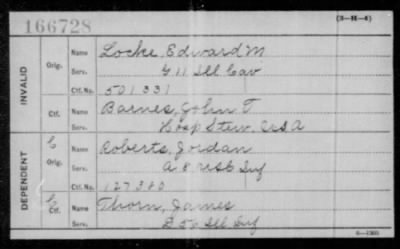 166728
(3-H-4)
INVALID
Orig.
Name Locke, Edward M
Serv. G 11 Ill Cav
Ctf. No. 501331
Ctf.
Name Barnes, John T
Serv. Hosp Stew, USA
DEPENDENT
Orig.
Name Roberts, Jordan
Serv. A 8 Inf
Ctf. No. 127380
Ctf.
Name Thorn, James
Serv. D 50 Ill Inf